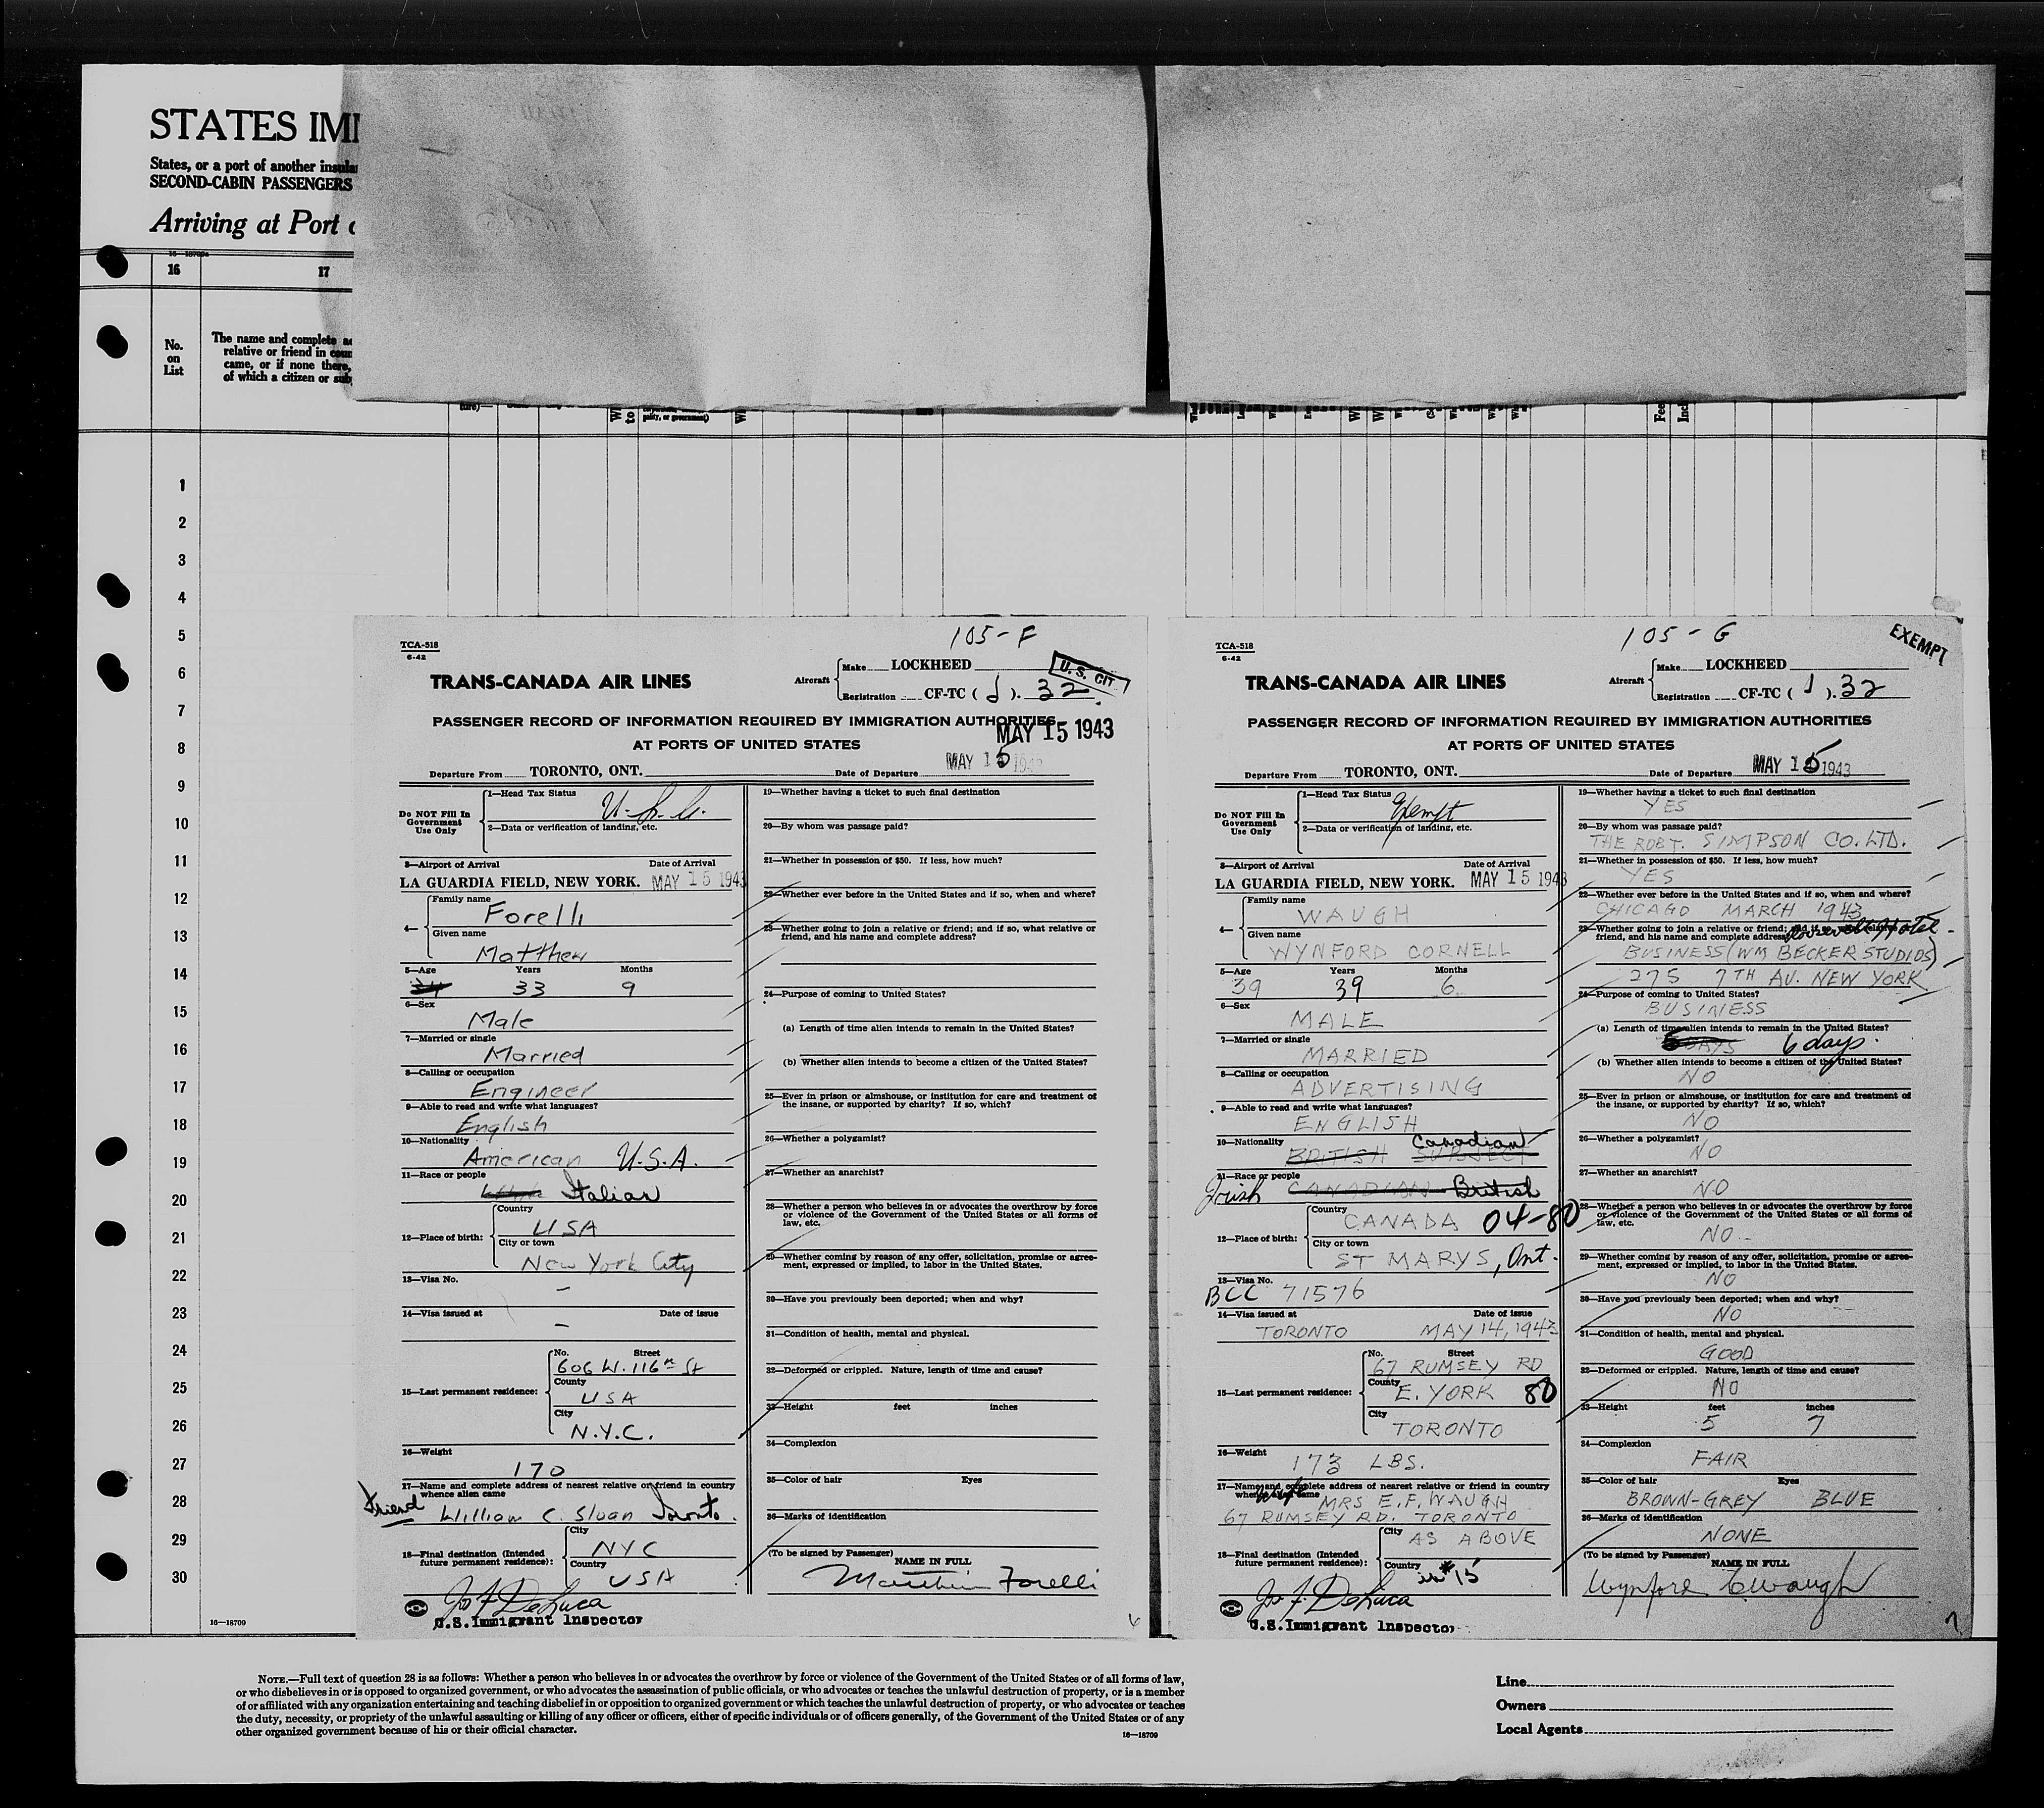 STATES IMI
States, or a port of another insula
SECOND-CABIN PASSENGERS
Arriving at Port o
16—18709a
16 17
No. on List
The name and complete ad
relative or friend in coun
came, or if none there,
of which a citizen or sub
ture)—
pality, or government)
1
2
3
4
5
6
7
8
9
10
11
12
13
14
15
16
17
18
19
20
21
22
23
24
25
26
27
28
29
30
16—18709
105-F
TCA-518
6-42
TRANS-CANADA AIR LINES
Aircraft
Make LOCKHEED
U.S. CIT.
Registration CF-TC ( J ). 32
PASSENGER RECORD OF INFORMATION REQUIRED BY IMMIGRATION AUTHORITIES
MAY 15 1943
AT PORTS OF UNITED STATES
Departure From TORONTO, ONT. Date of Departure MAY 15 1943
Do NOT Fill In
Government
Use Only
1—Head Tax Status
2—Data or verification of landing, etc.
3—Airport of Arrival Date of Arrival
LA GUARDIA FIELD, NEW YORK. MAY 15 1943
4—
Family name
Forelli
Given name
Matthew
5—Age Years Months
34 33 9
6—Sex
Male
7—Married or single
Married
8—Calling or occupation
Engineer
9—Able to read and write what languages?
English
10—Nationality
American U.S.A.
11—Race or people
Italian
12—Place of birth:
Country
USA
City or town
New York City
13—Visa No.
–
14—Visa issued at Date of issue
–
15—Last permanent residence:
No. Street
606 W. 116th St
County
USA
City
N.Y.C.
16—Weight
170
17—Name and complete address of nearest relative or friend in country
whence alien came
friend William C. Sloan Toronto.
18—Final destination (Intended
future permanent residence):
City
NYC
Country
USA
Jos F. DeLuca
U.S. Immigrant Inspector
19—Whether having a ticket to such final destination
20—By whom was passage paid?
21—Whether in possession of $50. If less, how much?
22—Whether ever before in the United States and if so, when and where?
23—Whether going to join a relative or friend; and if so, what relative or
friend, and his name and complete address?
24—Purpose of coming to United States?
(a) Length of time alien intends to remain in the United States?
(b) Whether alien intends to become a citizen of the United States?
25—Ever in prison or almshouse, or institution for care and treatment of
the insane, or supported by charity? If so, which?
26—Whether a polygamist?
27—Whether an anarchist?
28—Whether a person who believes in or advocates the overthrow by force
or violence of the Government of the United States or all forms of
law, etc.
29—Whether coming by reason of any offer, solicitation, promise or agree-
ment, expressed or implied, to labor in the United States.
30—Have you previously been deported; when and why?
31—Condition of health, mental and physical.
32—Deformed or crippled. Nature, length of time and cause?
33—Height feet inches
34—Complexion
35—Color of hair Eyes
36—Marks of identification
(To be signed by Passenger)
NAME IN FULL
Matthew Forelli
105-G
EXEMPT
TCA-518
6-42
TRANS-CANADA AIR LINES
Aircraft
Make LOCKHEED
Registration CF-TC ( J ). 32
PASSENGER RECORD OF INFORMATION REQUIRED BY IMMIGRATION AUTHORITIES
AT PORTS OF UNITED STATES
Departure From TORONTO, ONT. Date of Departure MAY 15 1943
Do NOT Fill In
Government
Use Only
1—Head Tax Status
Exempt
2—Data or verification of landing, etc.
3—Airport of Arrival Date of Arrival
LA GUARDIA FIELD, NEW YORK. MAY 15 1943
4—
Family name
WAUGH
Given name
WYNFORD CORNELL
5—Age Years Months
39 39 6
6—Sex
MALE
7—Married or single
MARRIED
8—Calling or occupation
ADVERTISING
9—Able to read and write what languages?
ENGLISH
10—Nationality
BRITISH SUBJECT Canadian
11—Race or people
Irish CANADIAN British
12—Place of birth:
Country
CANADA 04-80
City or town
ST MARYS, Ont.
13—Visa No.
BCC 71576
14—Visa issued at Date of issue
TORONTO MAY 14, 1943
15—Last permanent residence:
No. Street
67 RUMSEY RD
County
E. YORK 80
City
TORONTO
16—Weight
173 LBS.
17—Name and complete address of nearest relative or friend in country
whence alien came
wife MRS E.F. WAUGH
67 RUMSEY RD. TORONTO
18—Final destination (Intended
future permanent residence):
City
AS ABOVE
Country
in #15
Jos F. DeLuca
U.S. Immigrant Inspector
19—Whether having a ticket to such final destination
YES
20—By whom was passage paid?
THE ROBT. SIMPSON CO. LTD.
21—Whether in possession of $50. If less, how much?
YES
22—Whether ever before in the United States and if so, when and where?
CHICAGO MARCH 1943
23—Whether going to join a relative or friend; and if so, what relative or
friend, and his name and complete address? Roosevelt Hotel.
BUSINESS (WM BECKER STUDIOS)
275 7TH AV. NEW YORK
24—Purpose of coming to United States?
BUSINESS
(a) Length of time alien intends to remain in the United States?
DAYS 6 days.
(b) Whether alien intends to become a citizen of the United States?
NO
25—Ever in prison or almshouse, or institution for care and treatment of
the insane, or supported by charity? If so, which?
NO
26—Whether a polygamist?
NO
27—Whether an anarchist?
NO
28—Whether a person who believes in or advocates the overthrow by force
or violence of the Government of the United States or all forms of
law, etc.
NO
29—Whether coming by reason of any offer, solicitation, promise or agree-
ment, expressed or implied, to labor in the United States.
NO
30—Have you previously been deported; when and why?
NO
31—Condition of health, mental and physical.
GOOD
32—Deformed or crippled. Nature, length of time and cause?
NO
33—Height feet inches
5 7
34—Complexion
FAIR
35—Color of hair Eyes
BROWN-GREY BLUE
36—Marks of identification
NONE
(To be signed by Passenger)
NAME IN FULL
Wynford C Waugh
7
NOTE.—Full text of question 28 is as follows: Whether a person who believes in or advocates the overthrow by force or violence of the Government of the United States or of all forms of law,
or who disbelieves in or is opposed to organized government, or who advocates the assassination of public officials, or who advocates or teaches the unlawful destruction of property, or is a member
of or affiliated with any organization entertaining and teaching disbelief in or opposition to organized government or which teaches the unlawful destruction of property, or who advocates or teaches
the duty, necessity, or propriety of the unlawful assaulting or killing of any officer or officers, either of specific individuals or of officers generally, of the Government of the United States or of any
other organized government because of his or their official character.
16—18709
Line
Owners
Local Agents